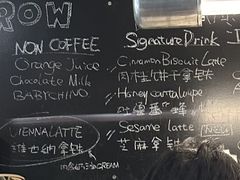 ROW
NON COFFEE
Orange Juice
Chocolate Milk
BABYCHINO
VIENNALATTE
维也纳拿铁
CREAM
Signature Drink
Cinnamon Biscuit Latte
肉桂饼干拿铁
Honey cantaloupe
Sesame latte NEW
芝麻拿铁